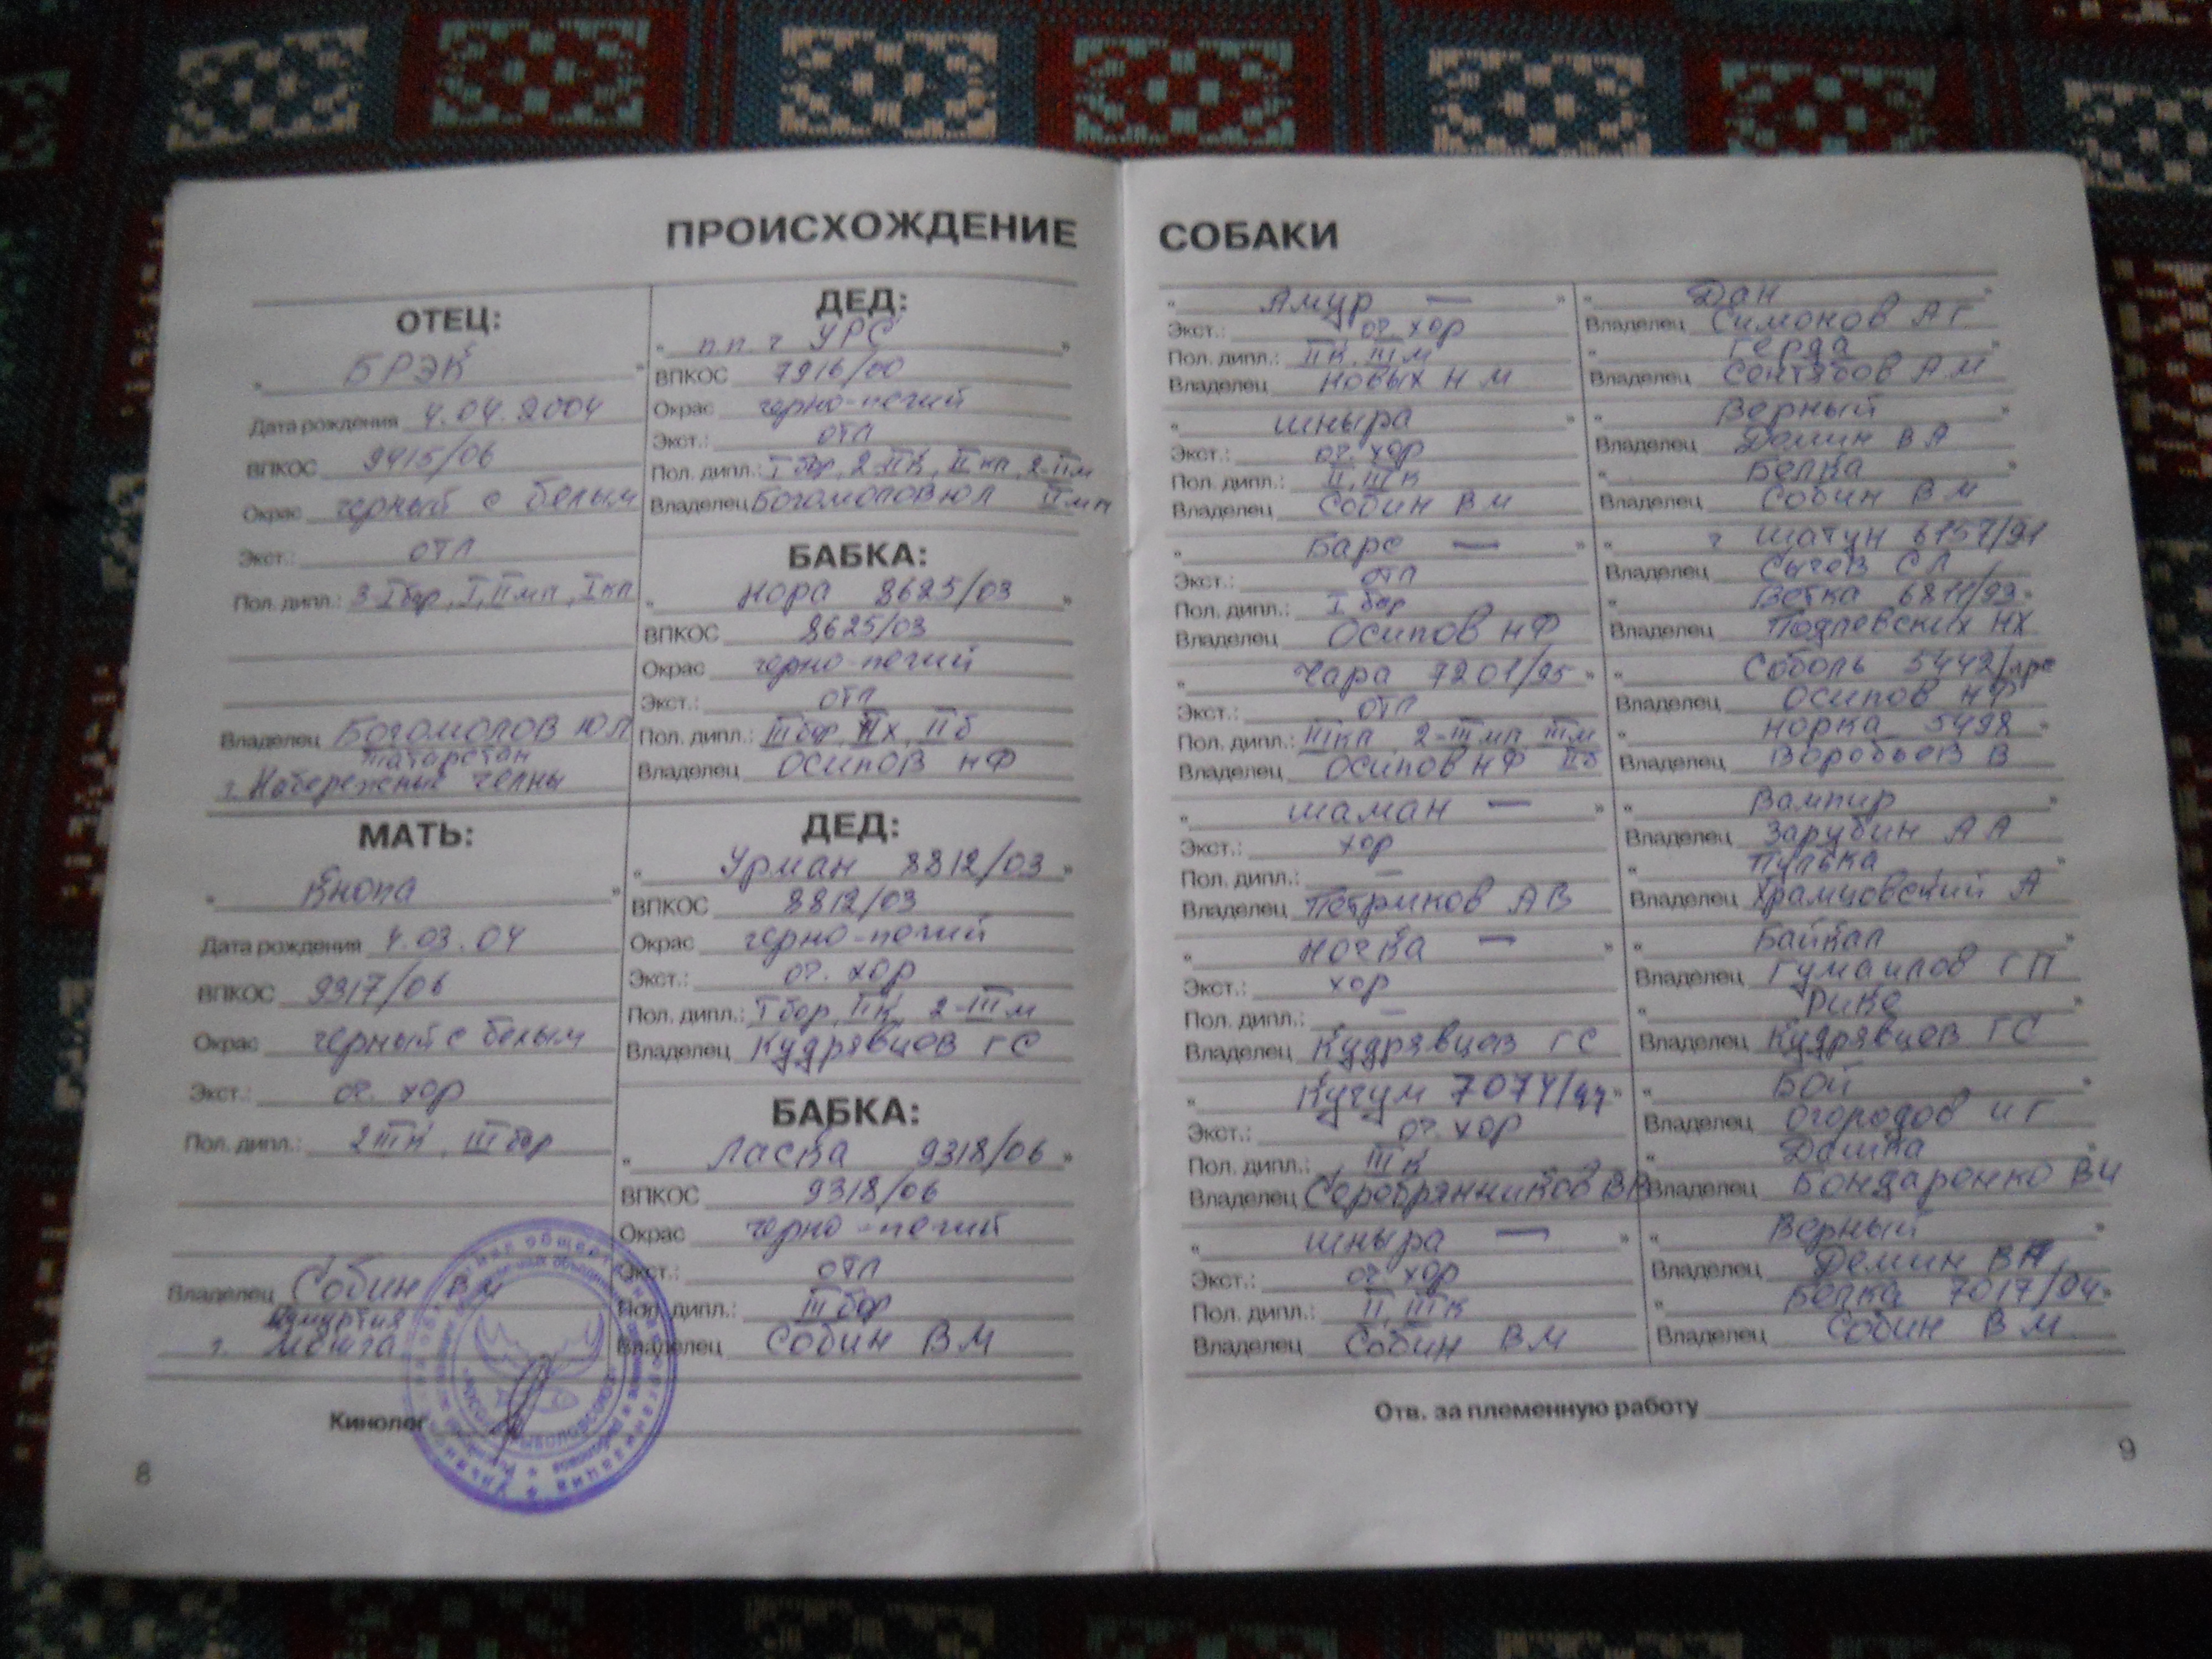 ПРОИСХОЖДЕНИЕ СОБАКИ
ОТЕЦ:
„ БРЭК "
Дата рождения 4.04.2004
ВПКОС 9415/06
Окрас черный с белым
Экст.: отл
Пол. дипл.: 3-I бар, I, II мл, I кл
Владелец Богомолов Ю Л
Татарстан
г. Набережные челны
МАТЬ:
„ Кнопа "
Дата рождения 4.03.04
ВПКОС 9317/06
Окрас черный с белым
Экст.: оч. хор
Пол. дипл.: 2 III К, III бар
Владелец Собин В М
Удмуртия
г. Можга
Кинолог
8
ДЕД:
„ п.п. ч УРС "
ВПКОС 7916/00
Окрас черно-пегий
Экст.: отл
Пол. дипл.: I бар, 2-II К, II кл, 2-II м
Владелец Богомолов Ю Л II мл
БАБКА:
„ Нора 8625/03 "
ВПКОС 8625/03
Окрас черно-пегий
Экст.: отл
Пол. дипл.: III бар, II х, II б
Владелец Осипов Н Ф
ДЕД:
„ Урман 8812/03 "
ВПКОС 8812/03
Окрас черно-пегий
Экст.: оч. хор
Пол. дипл.: I бар, II К, 2-III м
Владелец Кудрявцев Г С
БАБКА:
„ Ласка 9318/06 "
ВПКОС 9318/06
Окрас черно-пегий
Экст.: отл
Пол. дипл.: III бар
Владелец Собин В М
„ Амур — "
Экст.: оч. хор
Пол. дипл.: II К, III м
Владелец Новых Н М
„ Шныра "
Экст.: оч. хор
Пол. дипл.: II, III К
Владелец Собин В М
„ Барс — "
Экст.: отл
Пол. дипл.: I бар
Владелец Осипов Н Ф
„ Чара 7201/95 "
Экст.: отл
Пол. дипл.: III кл 2-III мл III м
Владелец Осипов Н Ф II б
„ Шаман — "
Экст.: хор
Пол. дипл.: —
Владелец Петриков А В
„ Ночка — "
Экст.: хор
Пол. дипл.: —
Владелец Кудрявцев Г С
„ Кучум 7074/94 "
Экст.: оч. хор
Пол. дипл.: III К
Владелец Серебрянников В
„ Шныра — "
Экст.: оч. хор
Пол. дипл.: II, III К
Владелец Собин В М
„ Дан "
Владелец Симонов А Г
„ Герда "
Владелец Сентябов А М
„ Верный "
Владелец Демин В А
„ Белка "
Владелец Собин В М
„ ч Шатун 6157/91
Владелец Сычев С Л
„ Ветка 6811/93 "
Владелец Подлевских Н Х
„ Соболь 5442/лрс
Владелец Осипов Н Ф
„ Норка 5498 "
Владелец Воробьев В
„ Вампир "
Владелец Зарубин А А
„ Пулька "
Владелец Храмцовский А
„ Байкал "
Владелец Гумаилов Г П
„ Рике "
Владелец Кудрявцев Г С
„ Бой "
Владелец Огородов И Г
„ Дашка "
Владелец Бондаренко В И
„ Верный "
Владелец Демин В А
„ Белка 7017/94 "
Владелец Собин В М
Отв. за племенную работу
9